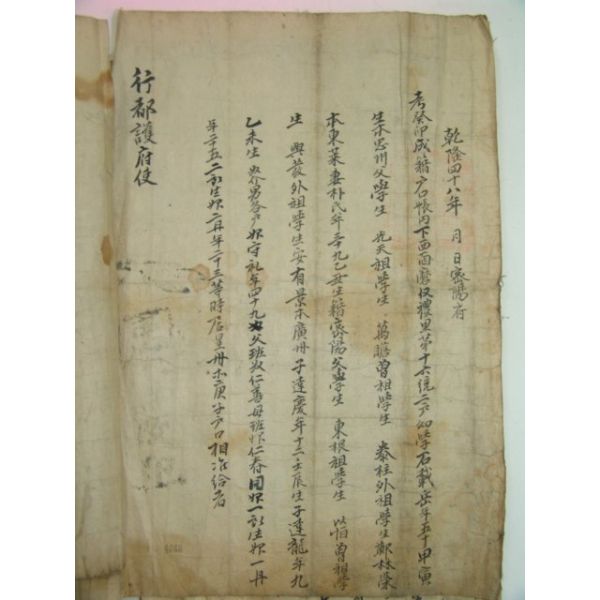 乾隆四十八年 月 日密陽府
考癸卯成籍戶口帳內下面面磨仅禮里第十六統二戶幼學石載岳年五十甲寅
生本忠州父學生 光天祖學生 萬聸曾祖學生 泰柱外祖學生鄭林榮
本東萊妻朴氏年三十九乙丑生籍密陽父學生 東根祖學生 以恒曾祖學
生 興發外祖學生安有景本廣州子達慶年十二壬辰生子達龍年九
乙未生 奴介男各戶婢守礼年四十九父班奴仁善母班婢仁春同婢一所生婢一丹
年二十五二所生婢二丹年二十三等時居星州木庚子戶口相准給者
行都護府使